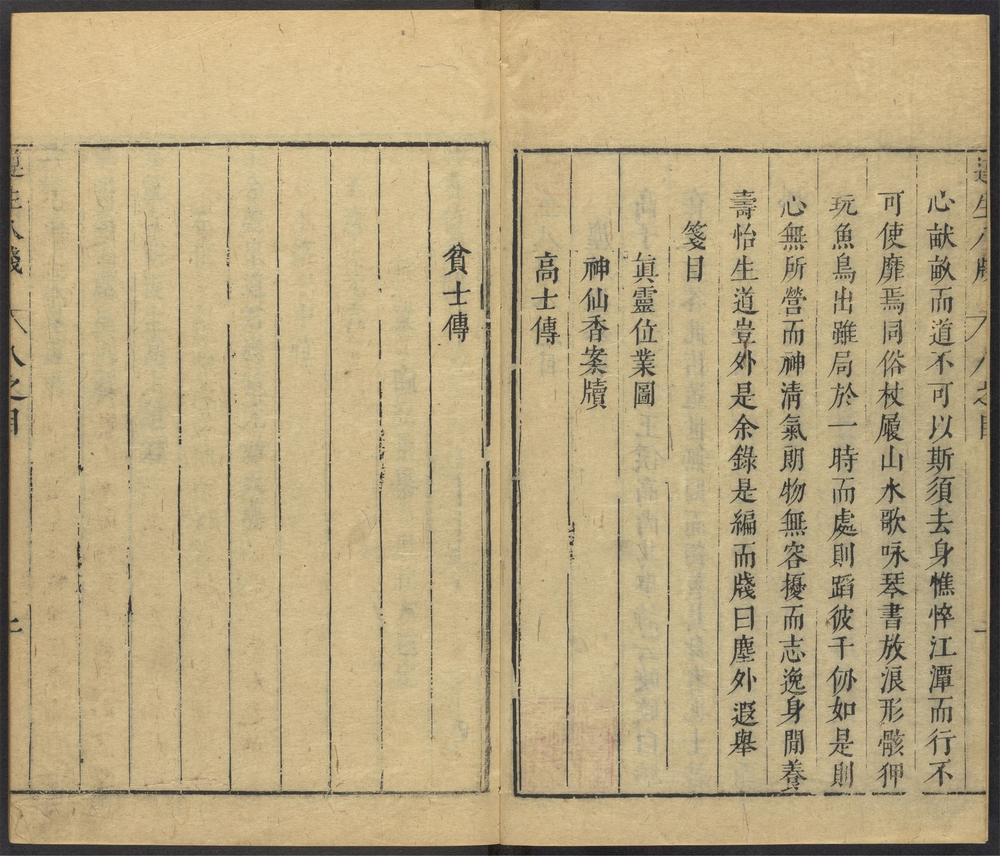 遵生八牋 八之目 一
心畎畝而道不可以斯須去身憔悴江潭而行不
可使靡焉同俗杖屨山水歌咏琴書放浪形骸狎
玩魚鳥出雖局於一時而處則蹈彼千仞如是則
心無所營而神清氣朗物無容擾而志逸身閒養
壽怡生道豈外是余錄是編而牋曰塵外遐舉
箋目
眞靈位業圖
神仙香案牘
高士傳
貧士傳
遵生八牋 八之目